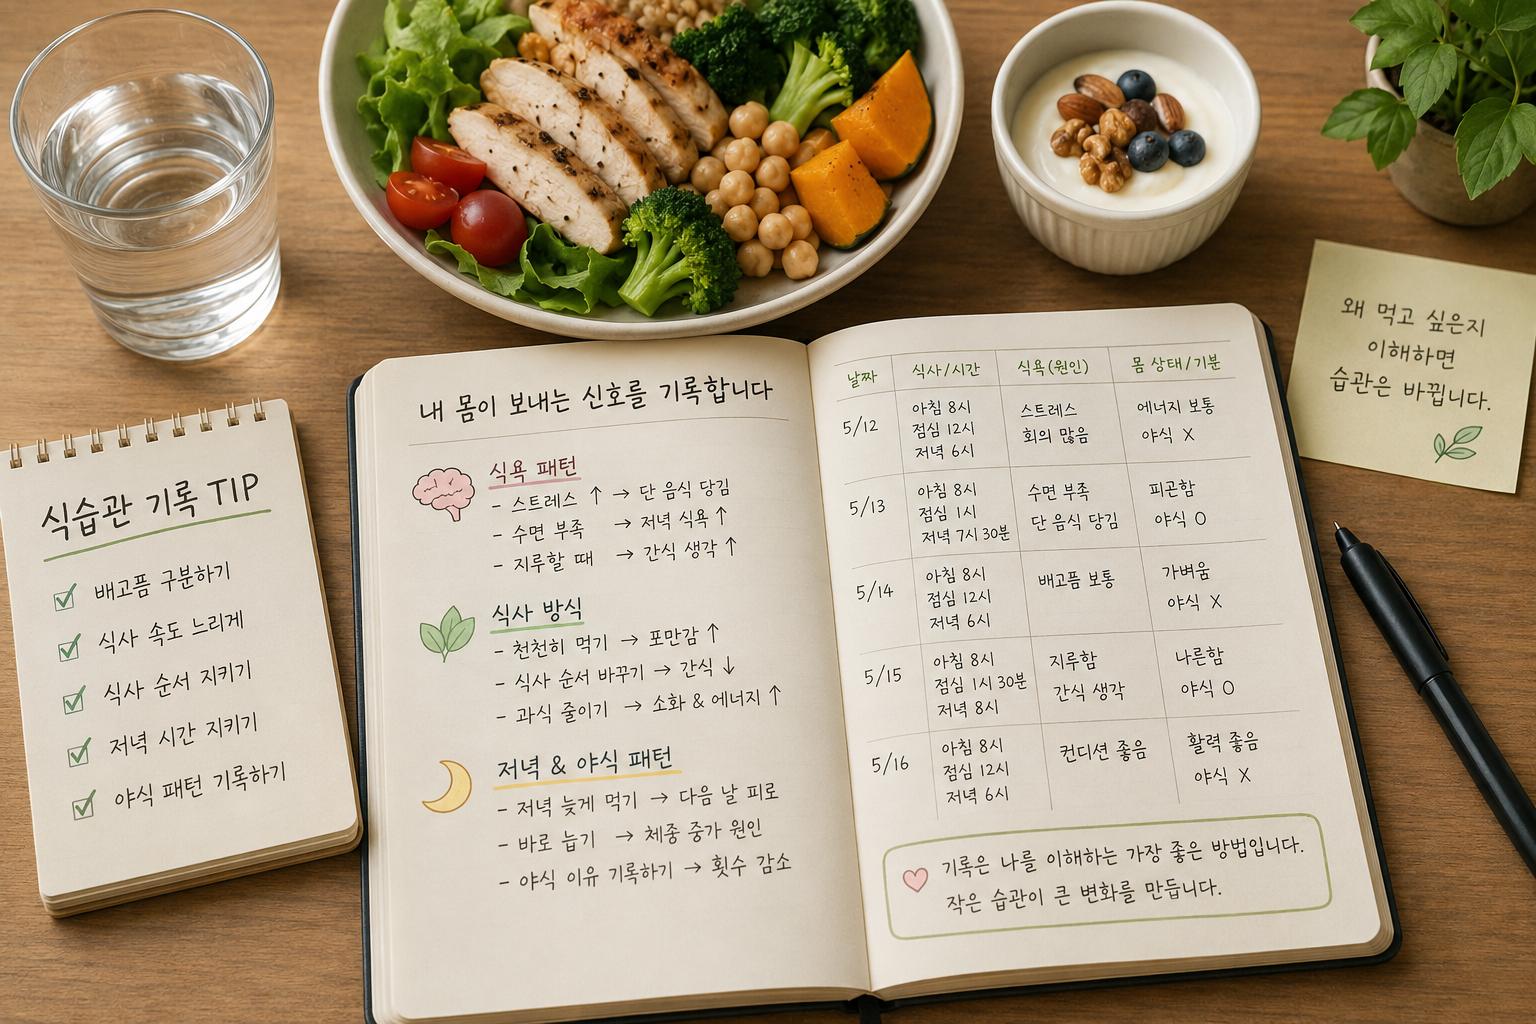 식습관 기록 TIP
배고픔 구분하기
식사 속도 느리게
식사 순서 지키기
저녁 시간 지키기
야식 패턴 기록하기
내 몸이 보내는 신호를 기록합니다
식욕 패턴
- 스트레스 ↑ → 단 음식 당김
- 수면 부족 → 저녁 식욕 ↑
- 지루할 때 → 간식 생각 ↑
식사 방식
- 천천히 먹기 → 포만감 ↑
- 식사 순서 바꾸기 → 간식 ↓
- 과식 줄이기 → 소화 & 에너지 ↑
저녁 & 야식 패턴
- 저녁 늦게 먹기 → 다음 날 피로
- 바로 눕기 → 체중 증가 원인
- 야식 이유 기록하기 → 횟수 감소
날짜 식사/시간 식욕(원인) 몸 상태/기분
5/12
아침 8시
점심 12시
저녁 6시
스트레스
회의 많음
에너지 보통
야식 X
5/13
아침 8시
점심 1시
저녁 7시 30분
수면 부족
단 음식 당김
피곤함
야식 O
5/14
아침 8시
점심 12시
저녁 6시
배고픔 보통
가벼움
야식 X
5/15
아침 8시
점심 1시 30분
저녁 8시
지루함
간식 생각
나른함
야식 O
5/16
아침 8시
점심 12시
저녁 6시
컨디션 좋음
활력 좋음
야식 X
기록은 나를 이해하는 가장 좋은 방법입니다.
작은 습관이 큰 변화를 만듭니다.
왜 먹고 싶은지
이해하면
습관은 바뀝니다.